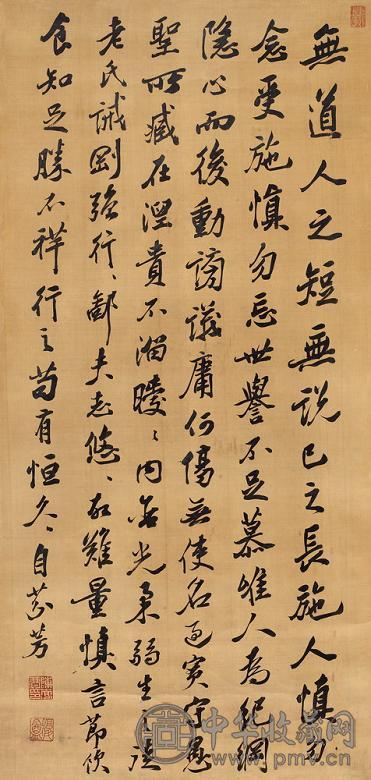 無道人之短無説己之長施人慎勿
念受施慎勿忘世譽不足慕唯人為紀綱
隐心而後動謗議庸何傷無使名過實守愚
聖所臧在涅貴不淄曖〻内含光柔弱生〻徒
老氏誡剛强行〻鄙夫志悠〻故難量慎言節飲
食知足勝不祥行之苟有恒久〻自芬芳
中华收藏网
www.pmv.cn